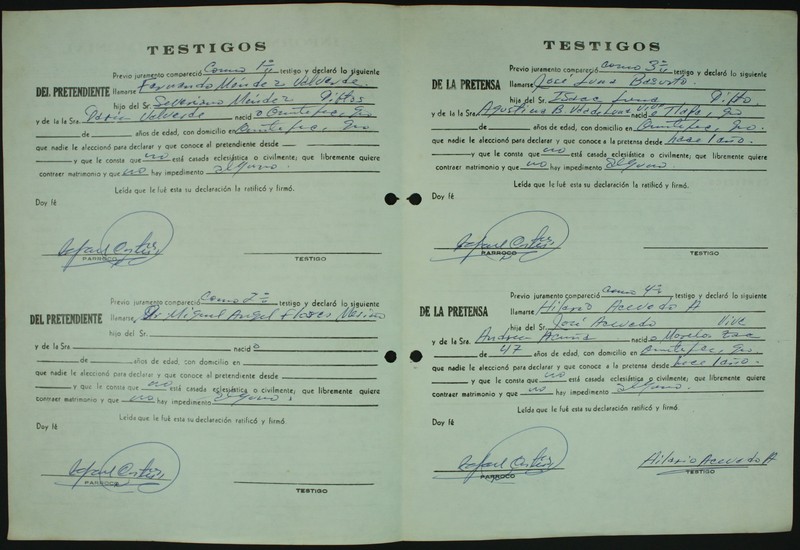 TESTIGOS
Previo juramento compareció Como 1º testigo y declaró lo siguiente
DEL PRETENDIENTE llamarse Fernando Méndez Valverde
hijo del Sr. Severiano Méndez Diftos
y de la Sra. Valverde nacid o Omitepec, Gro
de años de edad, con domicilio en Omitepec, Gro
que nadie le aleccionó para declarar y que conoce al pretendiente desde
y que le consta que no está casada eclesiástica o civilmente; que libremente quiere
contraer matrimonio y que no hay impedimento alguno.
Leída que le fué esta su declaración la ratificó y firmó.
Doy fé
Rafael
PARROCO
TESTIGO
Previo juramento compareció Como 2º testigo y declaró lo siguiente
DEL PRETENDIENTE llamarse Dr Miguel Angel Flores Mesino
hijo del Sr.
y de la Sra. nacid o
de años de edad, con domicilio en
que nadie le aleccionó para declarar y que conoce al pretendiente desde
y que le consta que no está casada eclesiástica o civilmente; que libremente quiere
contraer matrimonio y que no hay impedimento alguno.
Leída que le fué esta su declaración la ratificó y firmó.
Doy fé
Rafael
PARROCO
TESTIGO
TESTIGOS
Previo juramento compareció Como 3º testigo y declaró lo siguiente
DE LA PRETENSA llamarse José Luna Basurto
hijo del Sr. Isaac Luna Difto.
y de la Sra. Agustina B. Vda de Luna Vive nacid o Tlapa, Gro
de años de edad, con domicilio en Omitepec, Gro.
que nadie le aleccionó para declarar y que conoce a la pretensa desde hace 1 año.
y que le consta que no está casada eclesiástica o civilmente; que libremente quiere
contraer matrimonio y que no hay impedimento alguno.
Leída que le fué esta su declaración la ratificó y firmó.
Doy fé
Rafael
PARROCO
TESTIGO
Previo juramento compareció Como 4º testigo y declaró lo siguiente
DE LA PRETENSA llamarse Hilario Acevedo A
hijo del Sr. José Acevedo Vive
y de la Sra. Andrea Acuña nacid o Morelos
de 47 años de edad, con domicilio en Omitepec, Gro
que nadie le aleccionó para declarar y que conoce a la pretensa desde hace 1 año.
y que le consta que no está casada eclesiástica o civilmente; que libremente quiere
contraer matrimonio y que no hay impedimento alguno.
Leída que le fué esta su declaración la ratificó y firmó.
Doy fé
Rafael
PARROCO
Hilario Acevedo A
TESTIGO